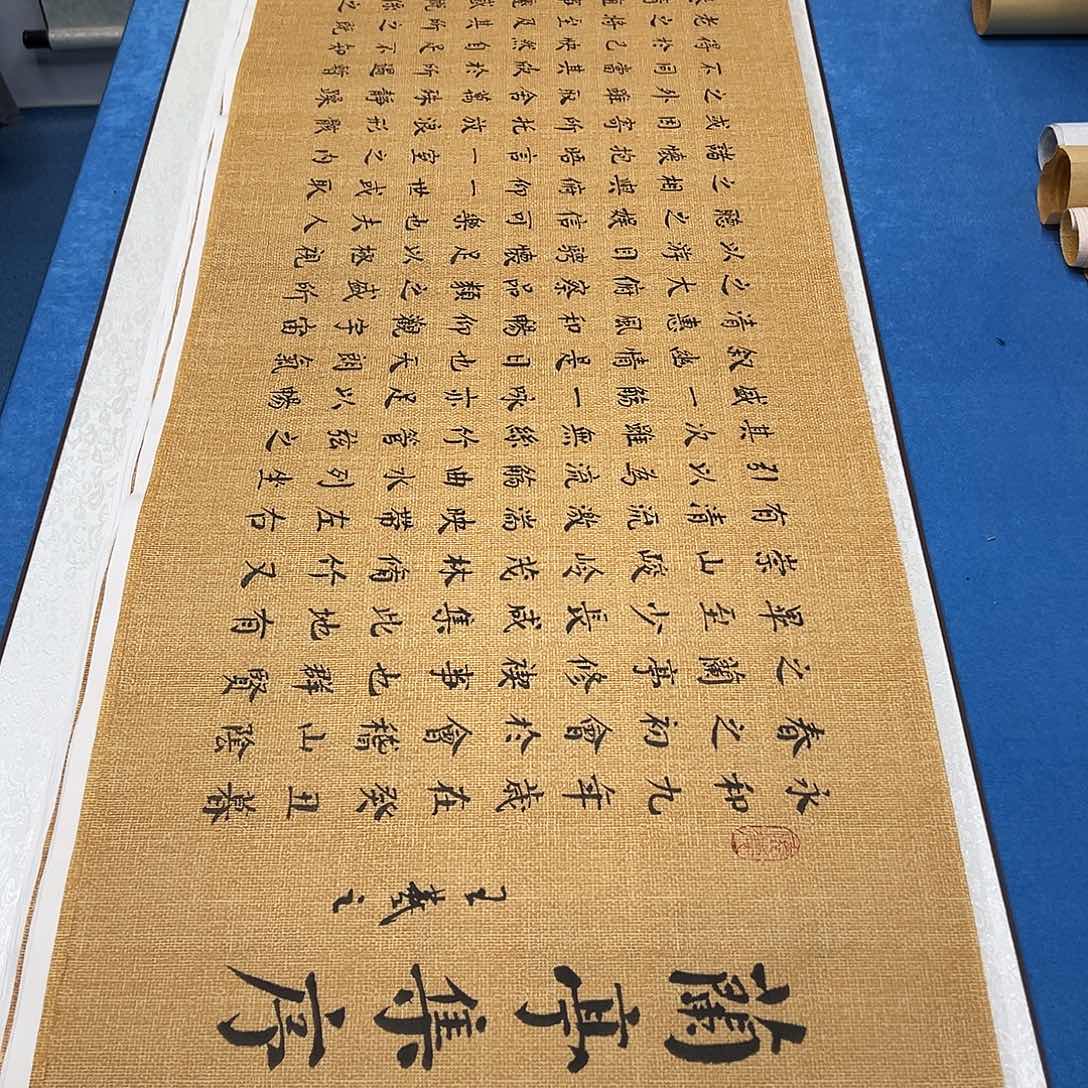 蘭亭集序
王羲之
永和九年歲在癸丑暮
春之初會於會稽山陰
之蘭亭修禊事也群賢
畢至少長咸集此地有
崇山峻岭茂林脩竹又
有清流激湍映帶左右
引以為流觴曲水列坐
其次雖無絲竹管弦之
盛一觴一詠亦足以暢
叙幽情是日也天朗氣
清惠風和暢仰觀宇宙
之大俯察品類之盛所
以游目騁懷足以極視
聽之娛信可樂也夫人
之相與俯仰一世或取
諸懷抱晤言一室之內
或因寄所托放浪形骸
之外雖取舍萬殊靜躁
不同當其欣於所遇暫
得於己快然自足不知
老之將至及其所之既